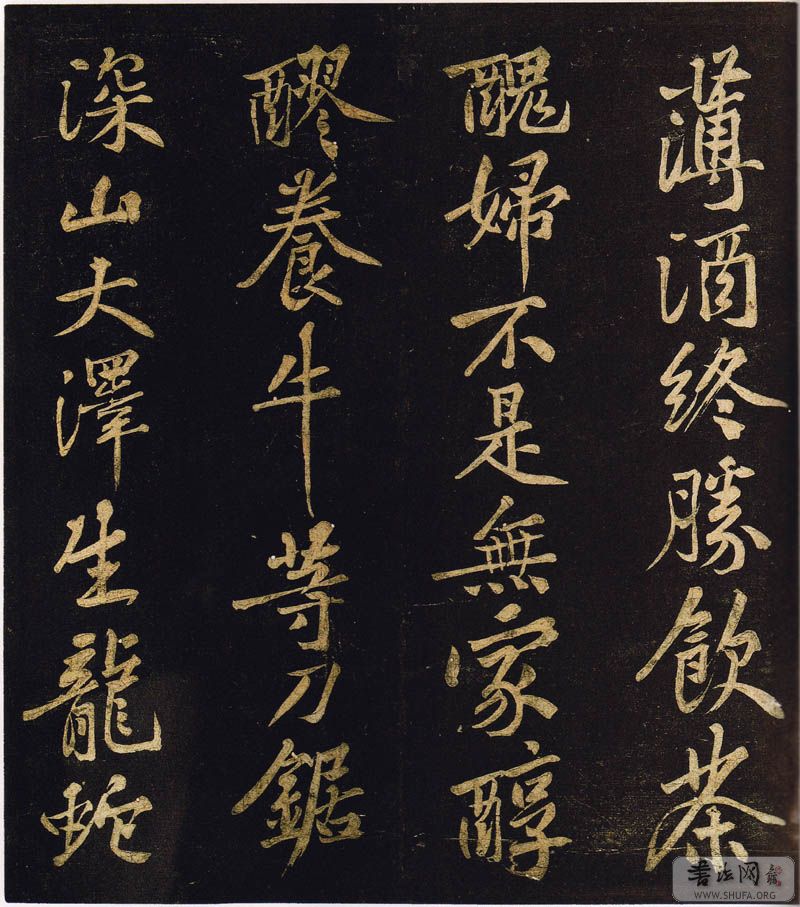 薄酒終勝飲茶
醜婦不是無家醇
醪養牛等刀鋸
深山大澤生龍蛇
書法网
WWW.SHUFA.ORG